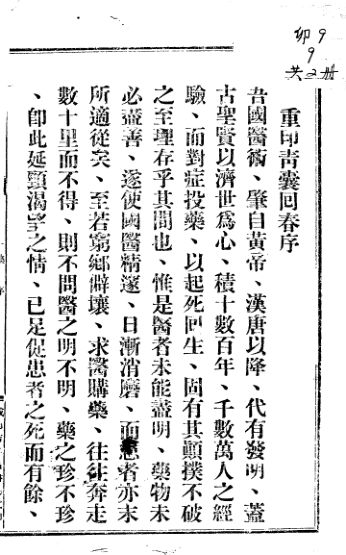 卯9
9
重印青囊回春序
吾國醫術、肇自黃帝、漢唐以降、代有發明、蓋
古聖賢以濟世爲心、積十數百年、千數萬人之經
驗、而對症投藥、以起死回生、固有其顚撲不破
之至理存乎其間也、惟是醫者未能盡明、藥物未
必盡善、遂使國醫精邃、日漸消磨、而患者亦末
所適從矣、至若窮鄉僻壤、求醫購藥、往往奔走
數十里而不得、則不問醫之明不明、藥之珍不珍
、卽此延頸渴望之情、已足促患者之死而有餘、